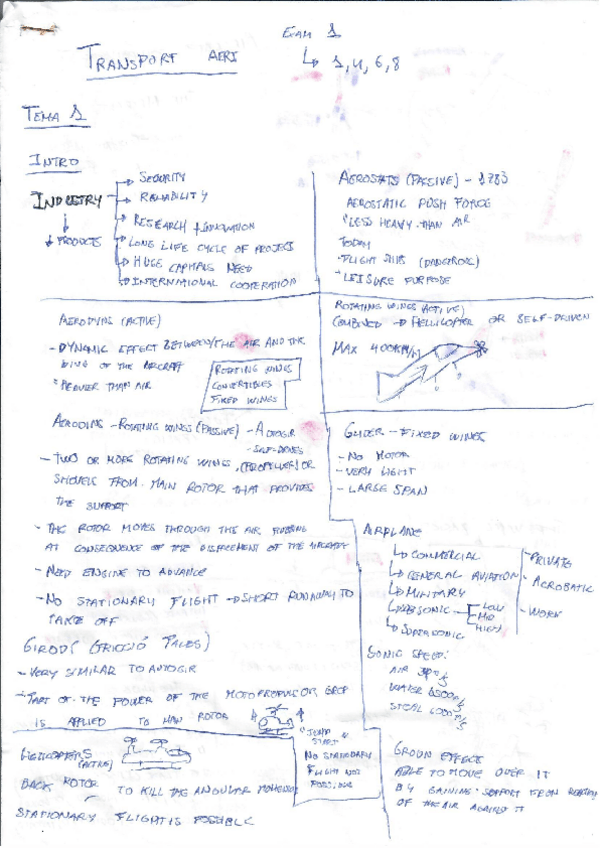 EXAM 1
TRANSPORT AERI
↳ 1, 4, 6, 8
TEMA 1
INTRO
INDUSTRY
→ SECURITY
→ RELIABILITY
→ RESEARCH + INNOVATION
→ LONG LIFE CYCLE OF PROJECT
→ HUGE CAPITALS NEED
→ INTERNATIONAL COOPERATION
↓ PRODUCTS
AEROSTATS (PASSIVE) - 1783
AEROSTATIC PUSH FORCE
"LESS HEAVY THAN AIR
TODAY
- FLIGHT SHIPS (DANGEROUS)
- LEISURE PURPOSE
AERODYNS (ACTIVE)
- DYNAMIC EFFECT BETWEEN THE AIR AND THE
WING OF THE AIRCRAFT
"HEAVIER THAN AIR
ROTATING WINGS
CONVERTIBLES
FIXED WINGS
ROTATING WINGS (ACTIVE)
COMBINED → HELLICOPTER OR SELF-DRIVEN
MAX 400KM/H
AERODINS - ROTATING WINGS (PASSIVE) - AUTOGIR
- TWO OR MORE ROTATING WINGS, (PROPELLERS) OR
SHOVELS FROM MAIN ROTOR THAT PROVIDES
THE SUPPORT
- THE ROTOR MOVES THROUGH THE AIR
AT CONSEQUENCE OF THE DISPLACEMENT OF THE AIRCRAFT
- NEED ENGINE TO ADVANCE
- NO STATIONARY FLIGHT → SHORT RUNAWAY TO
TAKE OFF
GLIDER - FIXED WINGS
- NO MOTOR
- VERY LIGHT
- LARGE SPAN
AIRPLANE
↳ COMMERCIAL
↳ GENERAL AVIATION
↳ MILITARY
↳ SUBSONIC
LOW
MID
HIGH
↳ SUPERSONIC
- PRIVATE
- ACROBATIC
- WORK
SONIC SPEED:
AIR m/s
WATER 1500m/s
STEEL 6000m/s
- VERY SIMILAR TO AUTOGIR
- PART OF THE POWER OF THE MOTOPROPULSOR GROUP
IS APPLIED TO MAIN ROTOR
"JUMP
START"
NO STATIONARY
FLIGHT NOT
POSSIBLE
HELICOPTERS
(ACTIVE)
BACK ROTOR TO KILL THE ANGULAR MOMENTUM
STATIONARY FLIGHT IS POSSIBLE
GROUN EFFECT
ABLE TO MOVE OVER IT
BY GAINING SUPPORT FROM REACTION
OF THE AIR AGAINST IT